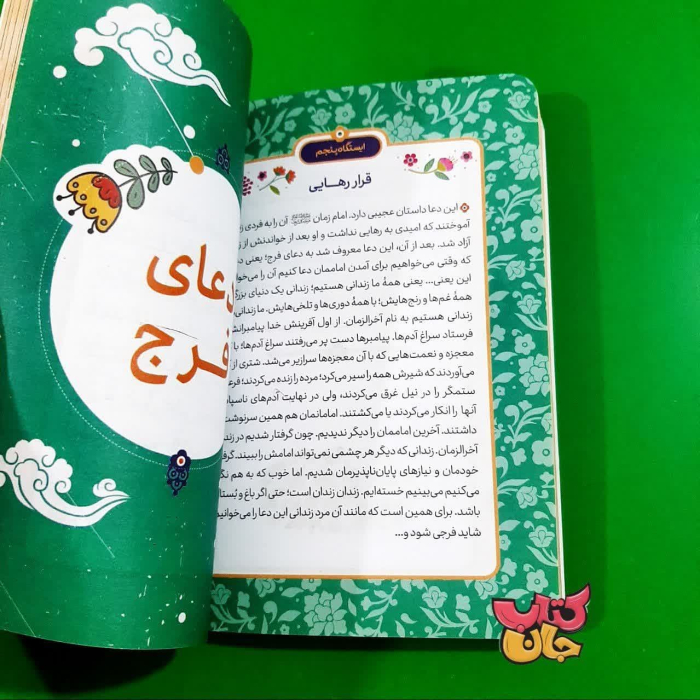 ایستگاه پنجم
قرار رهایی
این دعا داستان عجیبی دارد. امام زمان آن را به فردی
آموختند که امیدی به رهایی نداشت و او بعد از خواندنش از
آزاد شد. بعد از آن، این دعا معروف شد به دعای فرج؛ یعنی
که وقتی می‌خواهیم برای آمدن اماممان دعا کنیم آن را
این یعنی... یعنی همهٔ ما زندانی هستیم؛ زندانی یک دنیای
همهٔ غم‌ها و رنج‌هایش؛ با همهٔ دوری‌ها و تلخی‌هایش. ما زندانی
زندانی هستیم به نام آخرالزمان. از اول آفرینش خدا
فرستاد سراغ آدم‌ها. پیامبرها دست پر می‌رفتند سراغ آدم‌ها؛ با
معجزه و نعمت‌هایی که با آن معجزه‌ها سرازیر می‌شد. شتری از
می‌آوردند که شیرش همه را سیر می‌کرد؛ مرده را زنده می‌کردند؛
ستمگر را در نیل غرق می‌کردند، ولی در نهایت آدم‌های
آنها را انکار می‌کردند یا می‌کشتند. امامانمان هم همین سرنوشت
داشتند. آخرین اماممان را دیگر ندیدیم. چون گرفتار شدیم در
آخرالزمان. زندانی که دیگر هر چشمی نمی‌تواند امامش را ببیند.
خودمان و نیازهای پایان‌ناپذیرمان شدیم. اما خوب که به هم
می‌کنیم می‌بینیم خسته‌ایم. زندان زندان است؛ حتی اگر باغ و
باشد. برای همین است که مانند آن مرد زندانی این دعا را می‌خوانیم
شاید فرجی شود و...
دعای
فرج
کتاب
جان